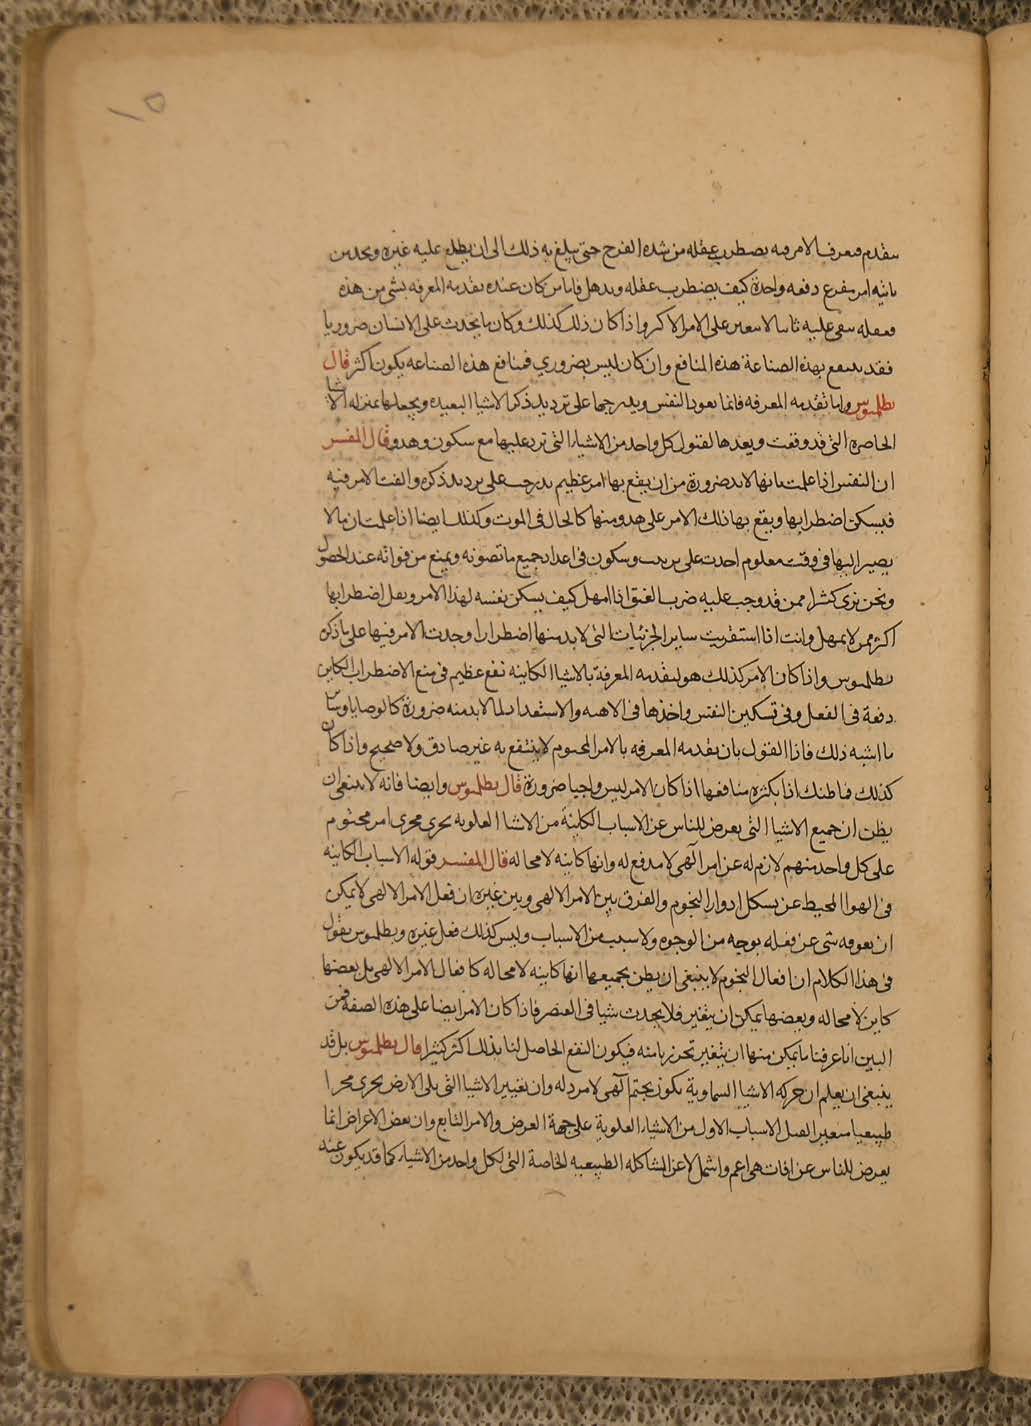 ١٥
يتقدم فيعرف الامر فيه يضطرب عقله من شدة الفرح حتى يبلغ به ذلك الى ان يطلع عليه غيره ونحو من
ياتيه امر مفزع دفعه واحدة كيف يضطرب عقله ويذهل فاما من كان عنده تقدمه المعرفه بشى من هذه
فعقله يبقى عليه ثابتا الا اليسير على الامر الاكثر واذا كان ذلك كذلك وكان ما يحدث على الانسان ضروريا
فقد ينتفع بهذه الصناعة هذه المنافع وان كان ليس بضروري فمنافع هذه الصناعه يكون اكثر قال
بطلميوس واما تقدمه المعرفه فانما يعود النفس ويدرجها على ترديد ذكر الاشيا البعيده ويجعلها بمنزله الاشيا
الحاضره التى قد وقعت ويعدها لقبول كل واحد من الاشياء التى ترد عليها مع سكون وهدو قال المفسر
ان النفس اذا علمت بانها لابد ضرورة من ان يقع بها امر عظيم تدرجت على ترديد ذكره والفت الامر فيه
فيسكن اضطرابها ويقع بها ذلك الامر على هدو منها كالحال فى الموت وكذلك ايضا اذا علمت ان مالا
يصير اليها فى وقت معلوم اخذت على ترتيب وسكون فى اعداد جميع ما تصونه ويمنع من فواته عند الحصول
ونحن نرى كثيرا ممن قد وجب عليه ضرب العنق اذا امهل كيف يسكن نفسه لهذا الامر ويقل اضطرابها
اكثر ممن لا يمهل وانت اذا استقريت ساير الجزئيات التى لابد منها اضطرارا وجدت الامر فيها على ما ذكره
بطلميوس واذا كان الامر كذلك هو لتقدمه المعرفة بالاشيا الكاينه نفع عظيم فى منع الاضطراب الكاين
دفعة فى الفعل وفى تسكين النفس واخذها فى الاهبه والاستعداد لما لابد منه ضرورة كالوصايا وسائر
ما اشبه ذلك فاذا القول بان تقدمه المعرفه بالامر المحتوم لا ينتفع به غير صادق ولا صحيح واذا كان
كذلك فما ظنك اذا بكثره منافعها اذا كان الامر ليس واجبا ضرورة قال بطلميوس وايضا فانه لا ينبغى ان
يظن ان جميع الاشيا التى يعرض للناس عن الاسباب الكلية من الاشيا العلويه يجرى مجرى امر محتوم
على كل واحد منهم لازم له عن امر الهى لا مدفع له وانها كاينه لا محاله قال المفسر قوله الاسباب الكاينه
فى الهوا المحيط عن تشكل ادوار النجوم والفرق بين الامر الالهى وبين غيره ان فعل الامر الالهى لا يمكن
ان يعوقه شى عن فعله بوجه من الوجوه ولا سبب من الاسباب وليس كذلك فعل غيره وبطلميوس يقول
فى هذا الكلام ان افعال النجوم لا ينبغى ان يظن بجميعها انها كاينه لا محاله كافعال الامر الالهى بل بعضها
كاين لا محاله وبعضها يمكن ان يتغير فلا يحدث شيا فى العنصر فاذا كان الامر ايضا على هذه الصفه فمن
البين انا اذا عرفنا ما يمكن منها ان يتغير تحرزنا منه فيكون النفع الحاصل لنا بذلك اكثر كثيرا قال بطلميوس بل قد
ينبغى ان يعلم ان حركه الاشيا السماوية تكون بحتم الهى لا مرد له وان تغيير الاشيا التى تلى الارض يجرى مجرا
طبيعيا متغير القبل الاسباب الاول من الاشياء العلوية على جهة العرض والامر التابع وان بعض الاعراض انما
يعرض للناس عن افات هى اعم واشمل لا عن المشاكله الطبيعيه الخاصة التى لكل واحد من الاشياء كما قد يكون عند